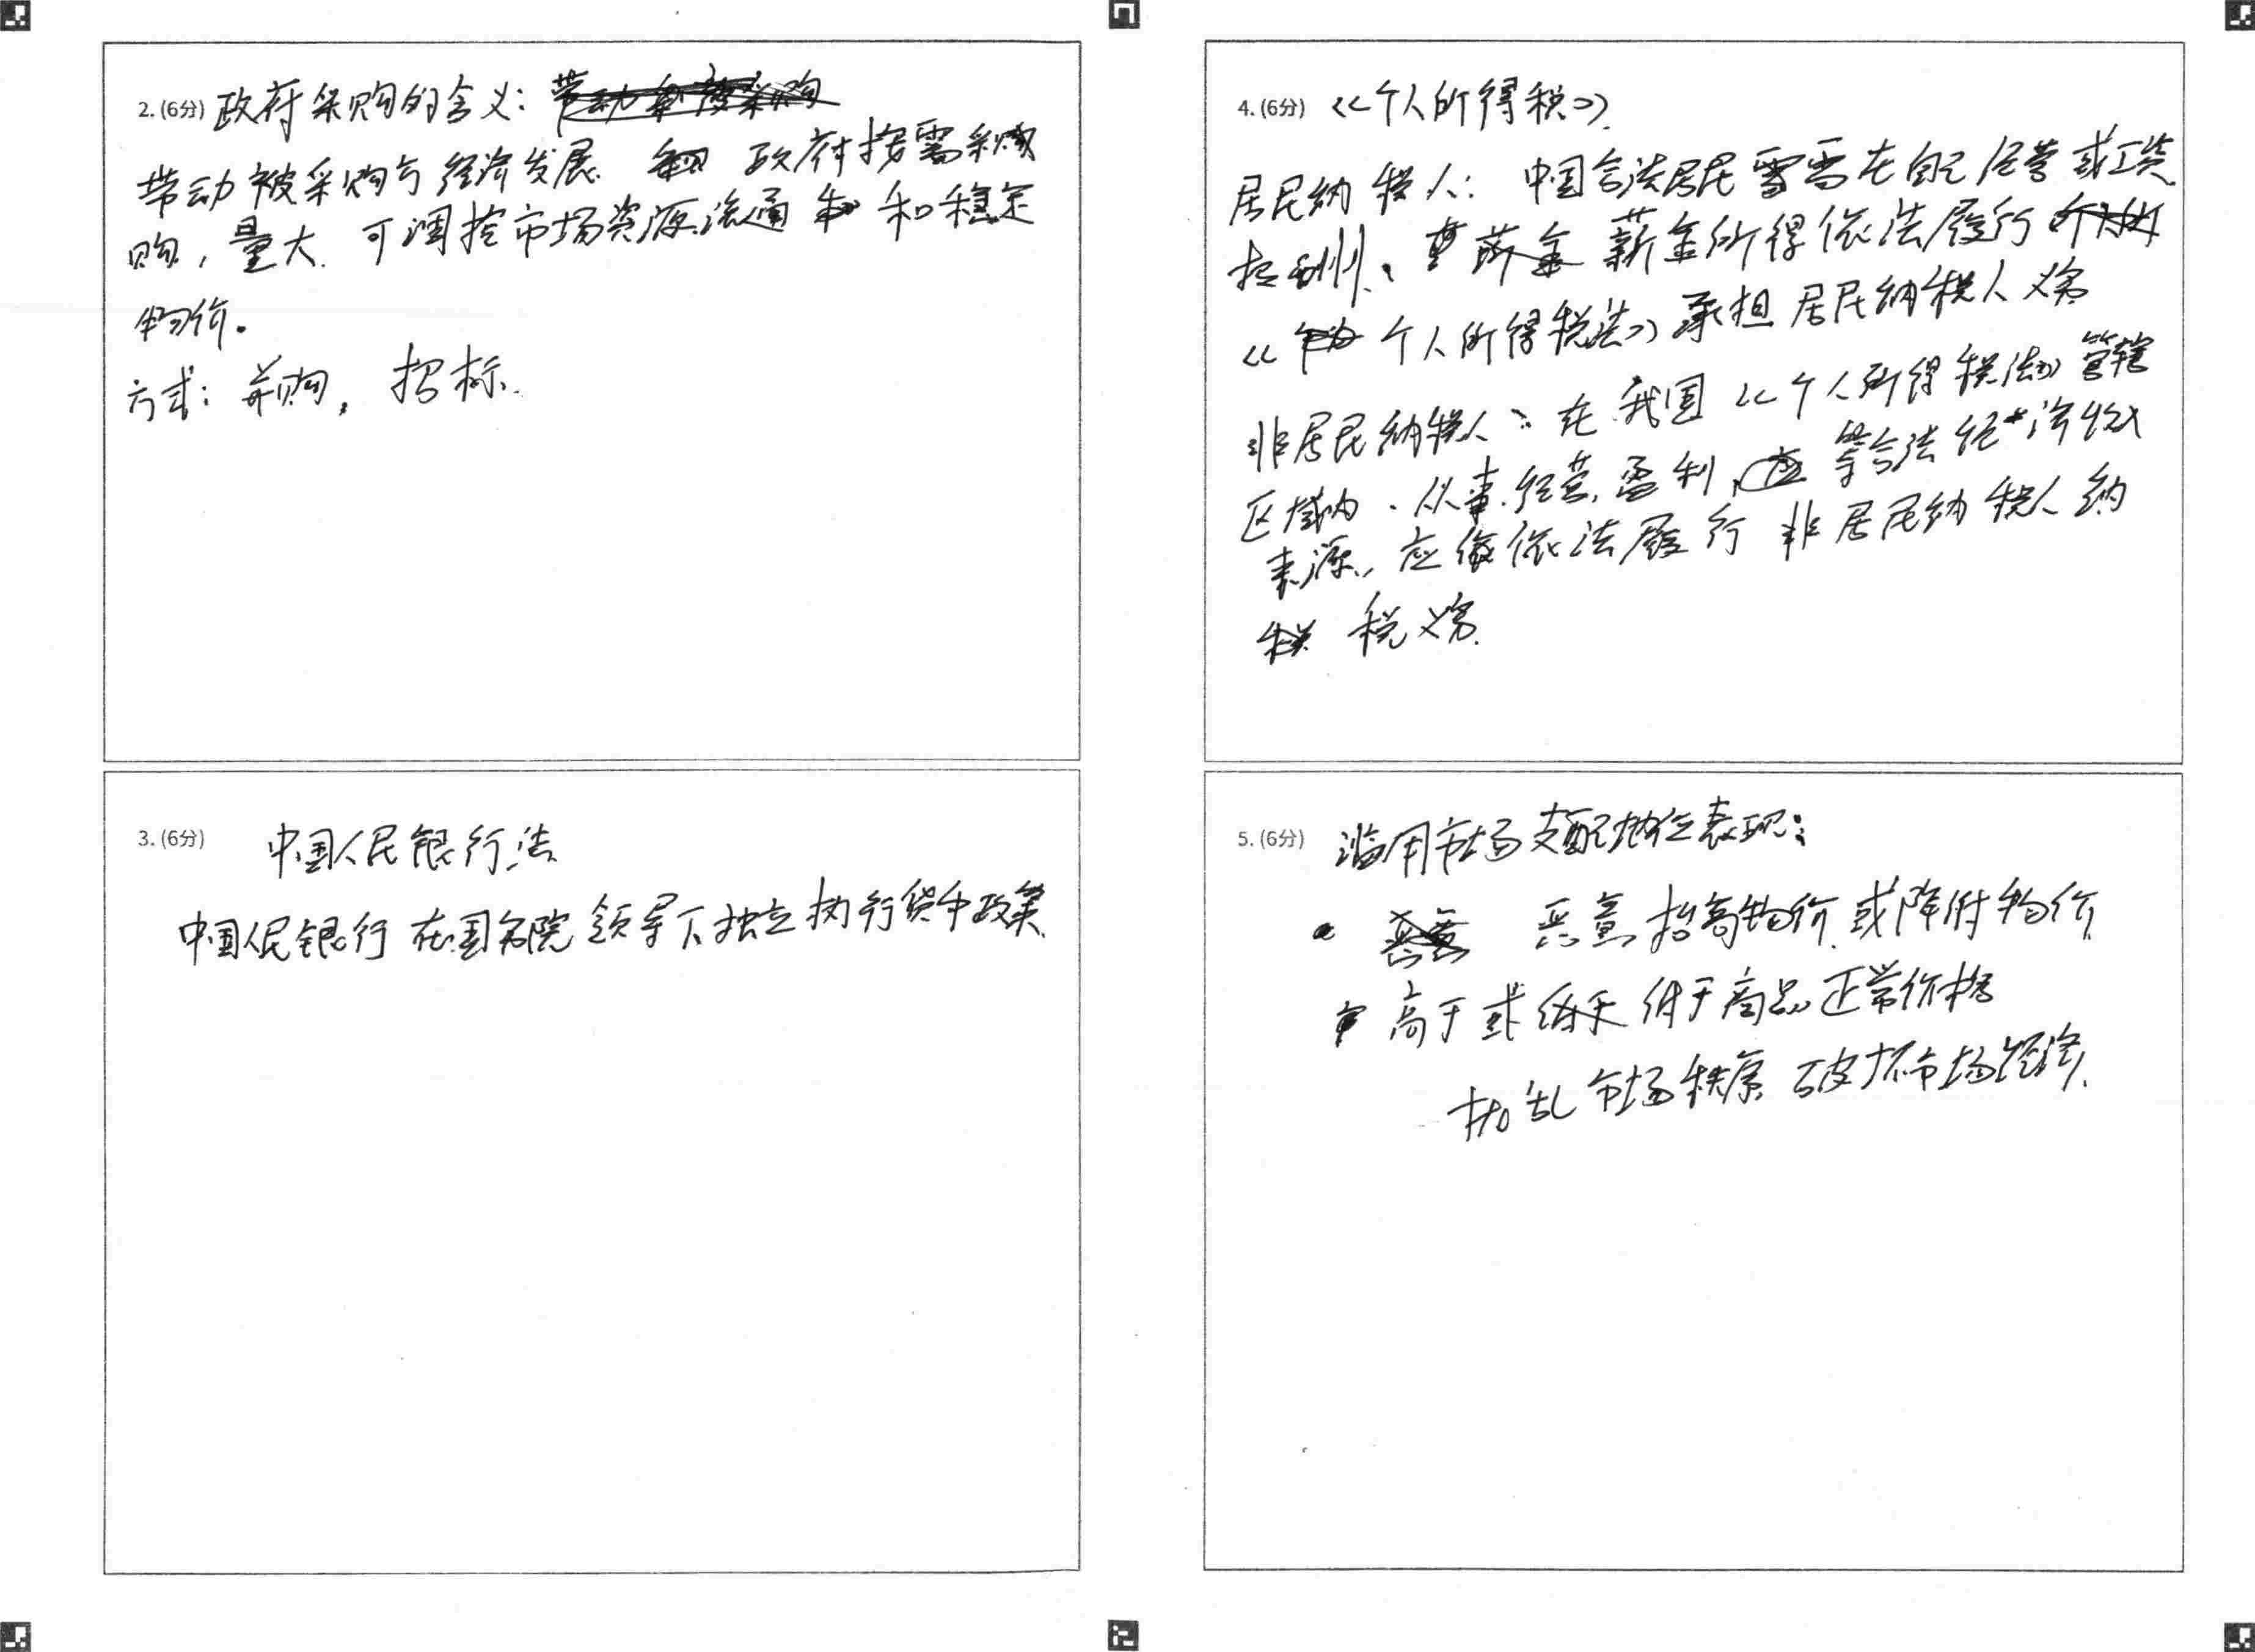 2. (6分) 政府采购的含义：
带动被采购方经济发展. 政府按需采
购，量大. 可调控市场资源流通 和稳定
物价。
方式：并购，招标.
3. (6分) 中国人民银行法
中国人民银行在国务院领导下独立执行货币政策.
4. (6分) 《个人所得税》
居民纳税人： 中国合法居民 在自己经营或工资
薪金所得依法履行
《 个人所得税法》承担居民纳税人义务
非居民纳税人：在我国《个人所得税法》管辖
区域内、从事.经营,盈利, 等合法经济收入
来源, 应 依法履行 非居民纳税人纳
税义务.
5. (6分) 滥用市场支配地位表现：
恶意抬高物价.或降低物价.
高于或 低于商品正常价格
扰乱市场秩序 破坏市场经济.